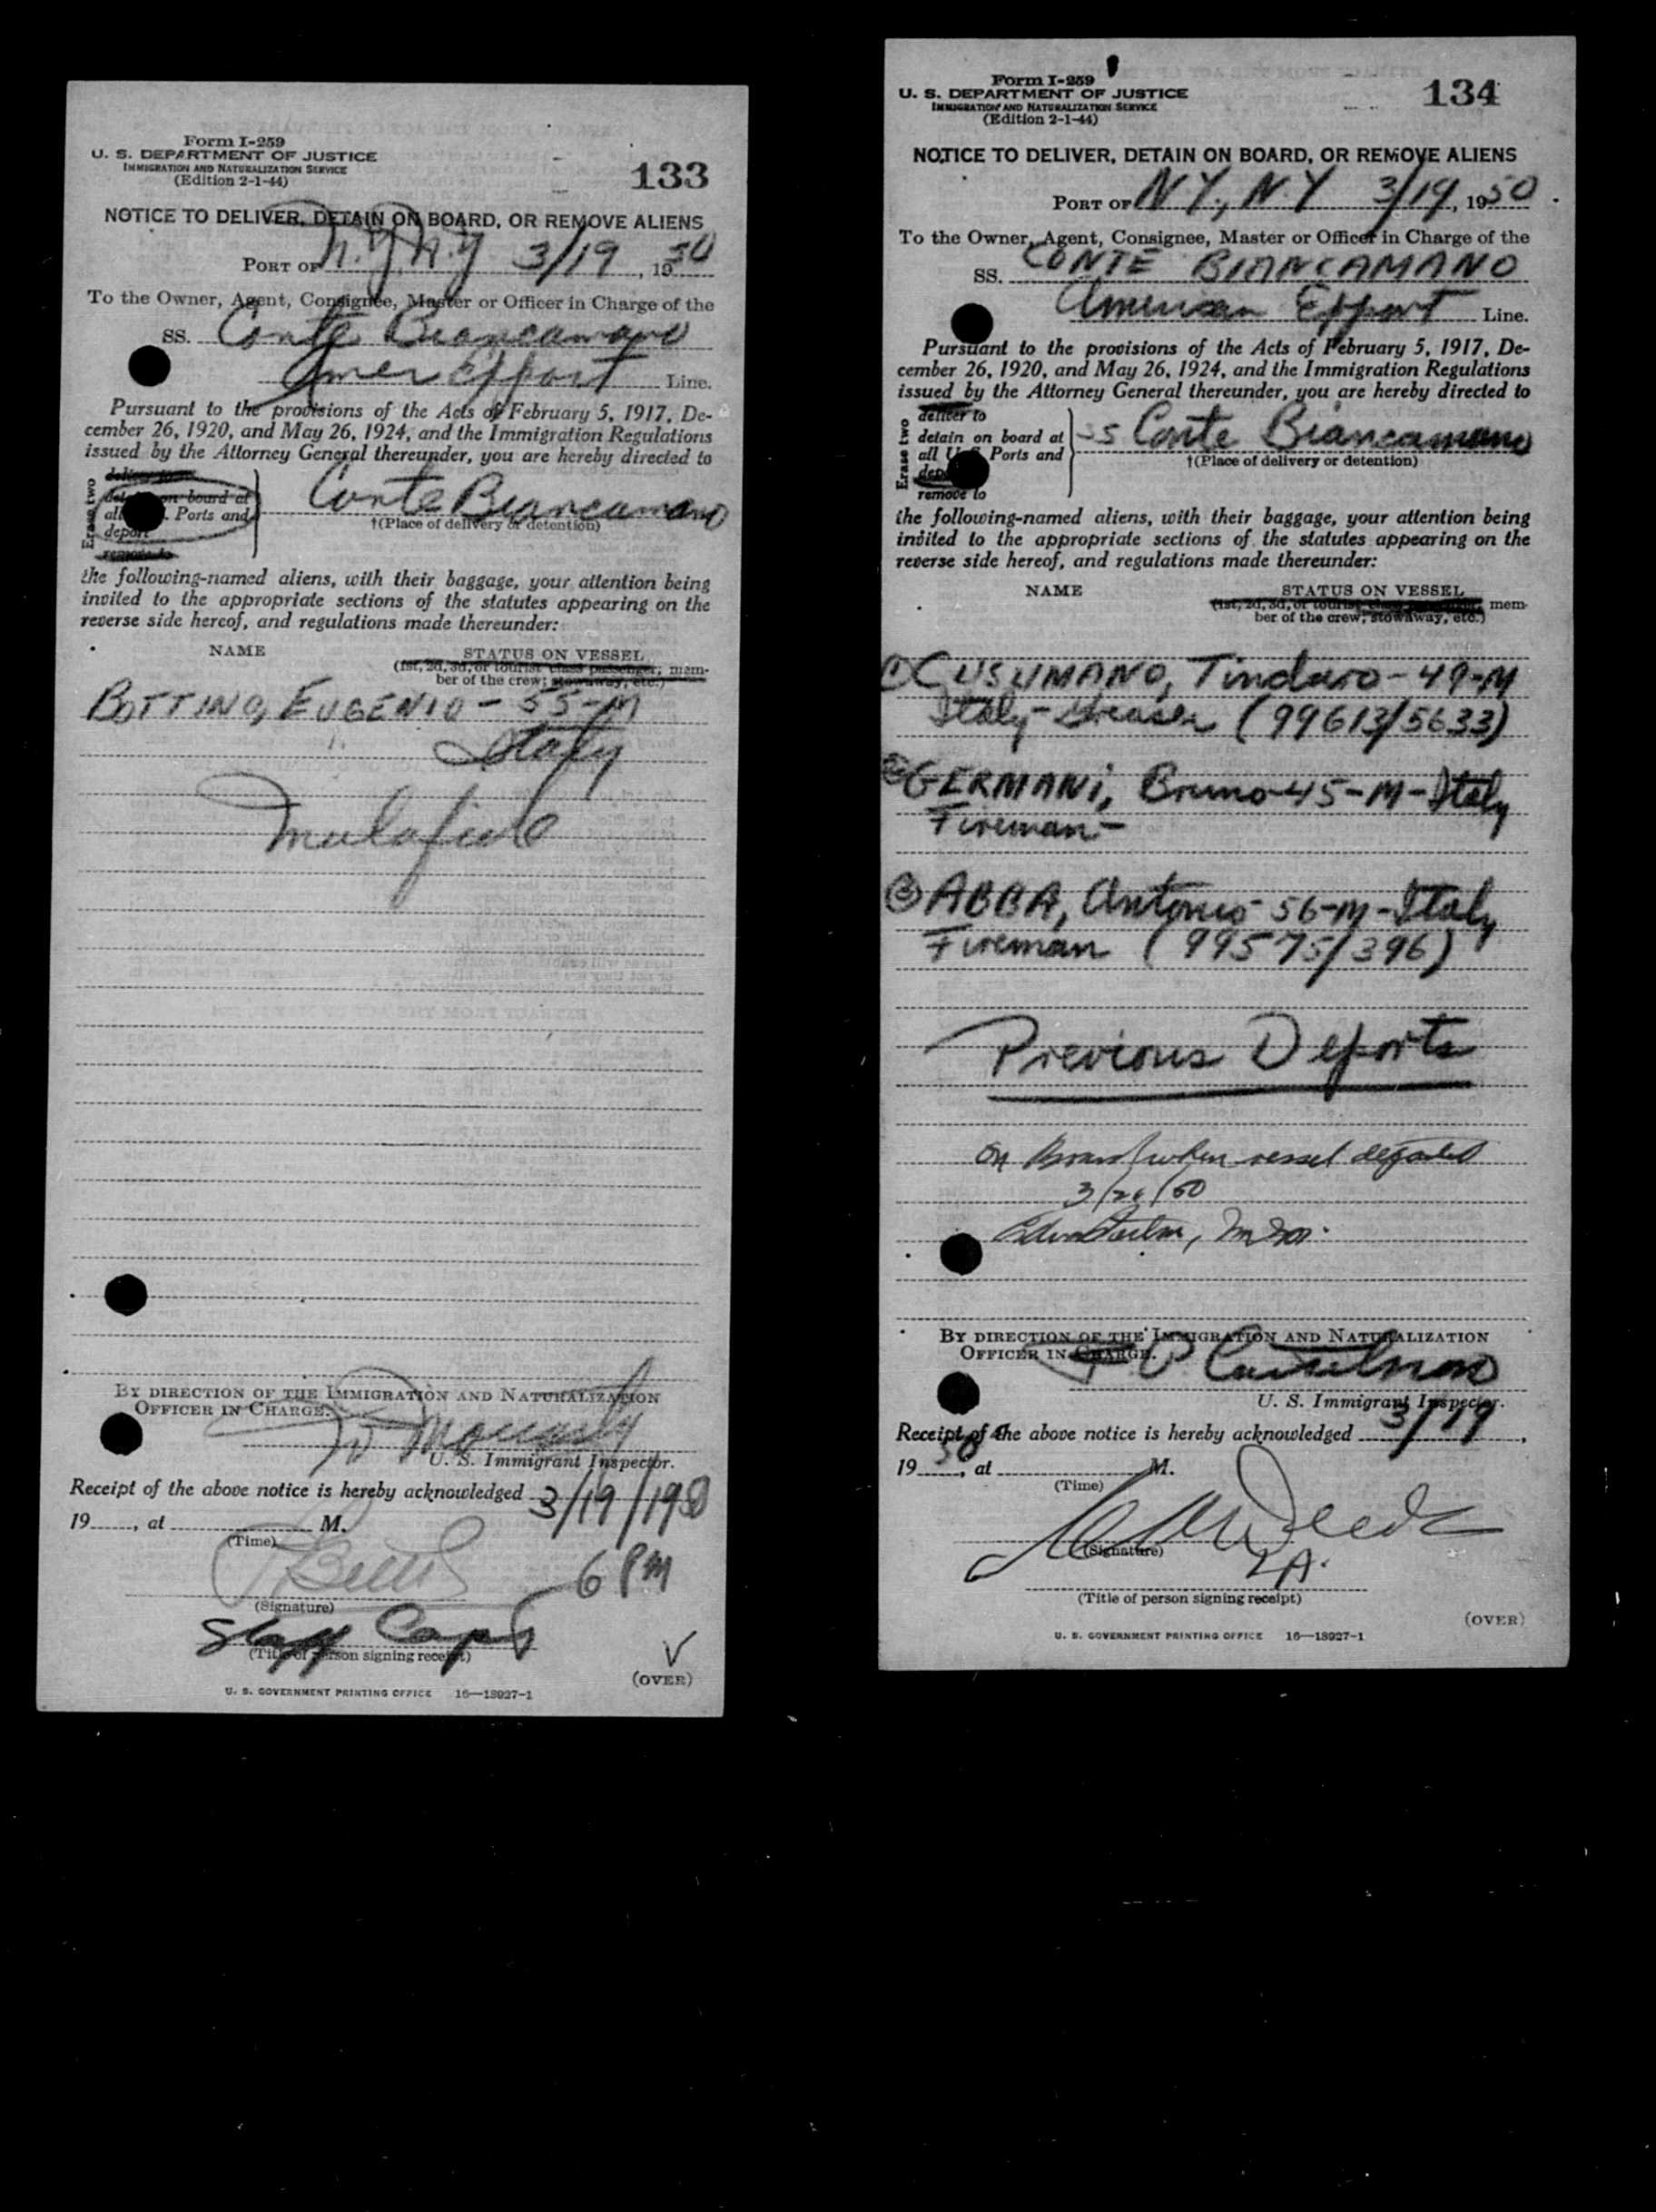 Form I-259
U. S. DEPARTMENT OF JUSTICE
IMMIGRATION AND NATURALIZATION SERVICE
(Edition 2-1-44)
133
NOTICE TO DELIVER, DETAIN ON BOARD, OR REMOVE ALIENS
PORT OF N.Y. N.Y 3/19, 1950
To the Owner, Agent, Consignee, Master or Officer in Charge of the
SS. Conte Biancamano
Amer Export Line.
Pursuant to the provisions of the Acts of February 5, 1917, De-
cember 26, 1920, and May 26, 1924, and the Immigration Regulations
issued by the Attorney General thereunder, you are hereby directed to
Erase two
on board at
Ports and
deport
remove to
Conte Biancamano
†(Place of delivery or detention)
the following-named aliens, with their baggage, your attention being
invited to the appropriate sections of the statutes appearing on the
reverse side hereof, and regulations made thereunder:
NAME STATUS ON VESSEL
(1st, 2d, 3d, or tourist class passenger; mem-
ber of the crew; stowaway, etc.)
BOTTING, EUGENIO - 55-M
Italy
Malafide
BY DIRECTION OF THE IMMIGRATION AND NATURALIZATION
OFFICER IN CHARGE.
U. S. Immigrant Inspector.
Receipt of the above notice is hereby acknowledged 3/19/1950
19____, at ____ M.
(Time)
6 PM
(Signature)
Staff Capt
(Title of person signing receipt)
(OVER)
U. S. GOVERNMENT PRINTING OFFICE 16—18927-1
Form I-259
U. S. DEPARTMENT OF JUSTICE
IMMIGRATION AND NATURALIZATION SERVICE
(Edition 2-1-44)
134
NOTICE TO DELIVER, DETAIN ON BOARD, OR REMOVE ALIENS
PORT OF N.Y., N.Y 3/19, 1950
To the Owner, Agent, Consignee, Master or Officer in Charge of the
SS. CONTE BIANCAMANO
American Export Line.
Pursuant to the provisions of the Acts of February 5, 1917, De-
cember 26, 1920, and May 26, 1924, and the Immigration Regulations
issued by the Attorney General thereunder, you are hereby directed to
Erase two
deliver to
detain on board at
all U. S. Ports and
remove to
SS Conte Biancamano
†(Place of delivery or detention)
the following-named aliens, with their baggage, your attention being
invited to the appropriate sections of the statutes appearing on the
reverse side hereof, and regulations made thereunder:
NAME STATUS ON VESSEL
(1st, 2d, 3d, or tourist class passenger; mem-
ber of the crew; stowaway, etc.)
① CUSUMANO, Tindaro - 49-M
Italy - Greaser (99613/5633)
② GERMANI, Bruno - 45-M-Italy
Fireman -
③ ABBA, Antonio 56-M-Italy
Fireman (99575/396)
Previous Deports
On Board when vessel departed
3/20/50
BY DIRECTION OF THE IMMIGRATION AND NATURALIZATION
OFFICER IN CHARGE.
U. S. Immigrant Inspector.
Receipt of the above notice is hereby acknowledged 3/19,
1950, at ____ M.
(Time)
(Signature)
(Title of person signing receipt)
(OVER)
U. S. GOVERNMENT PRINTING OFFICE 16—18927-1